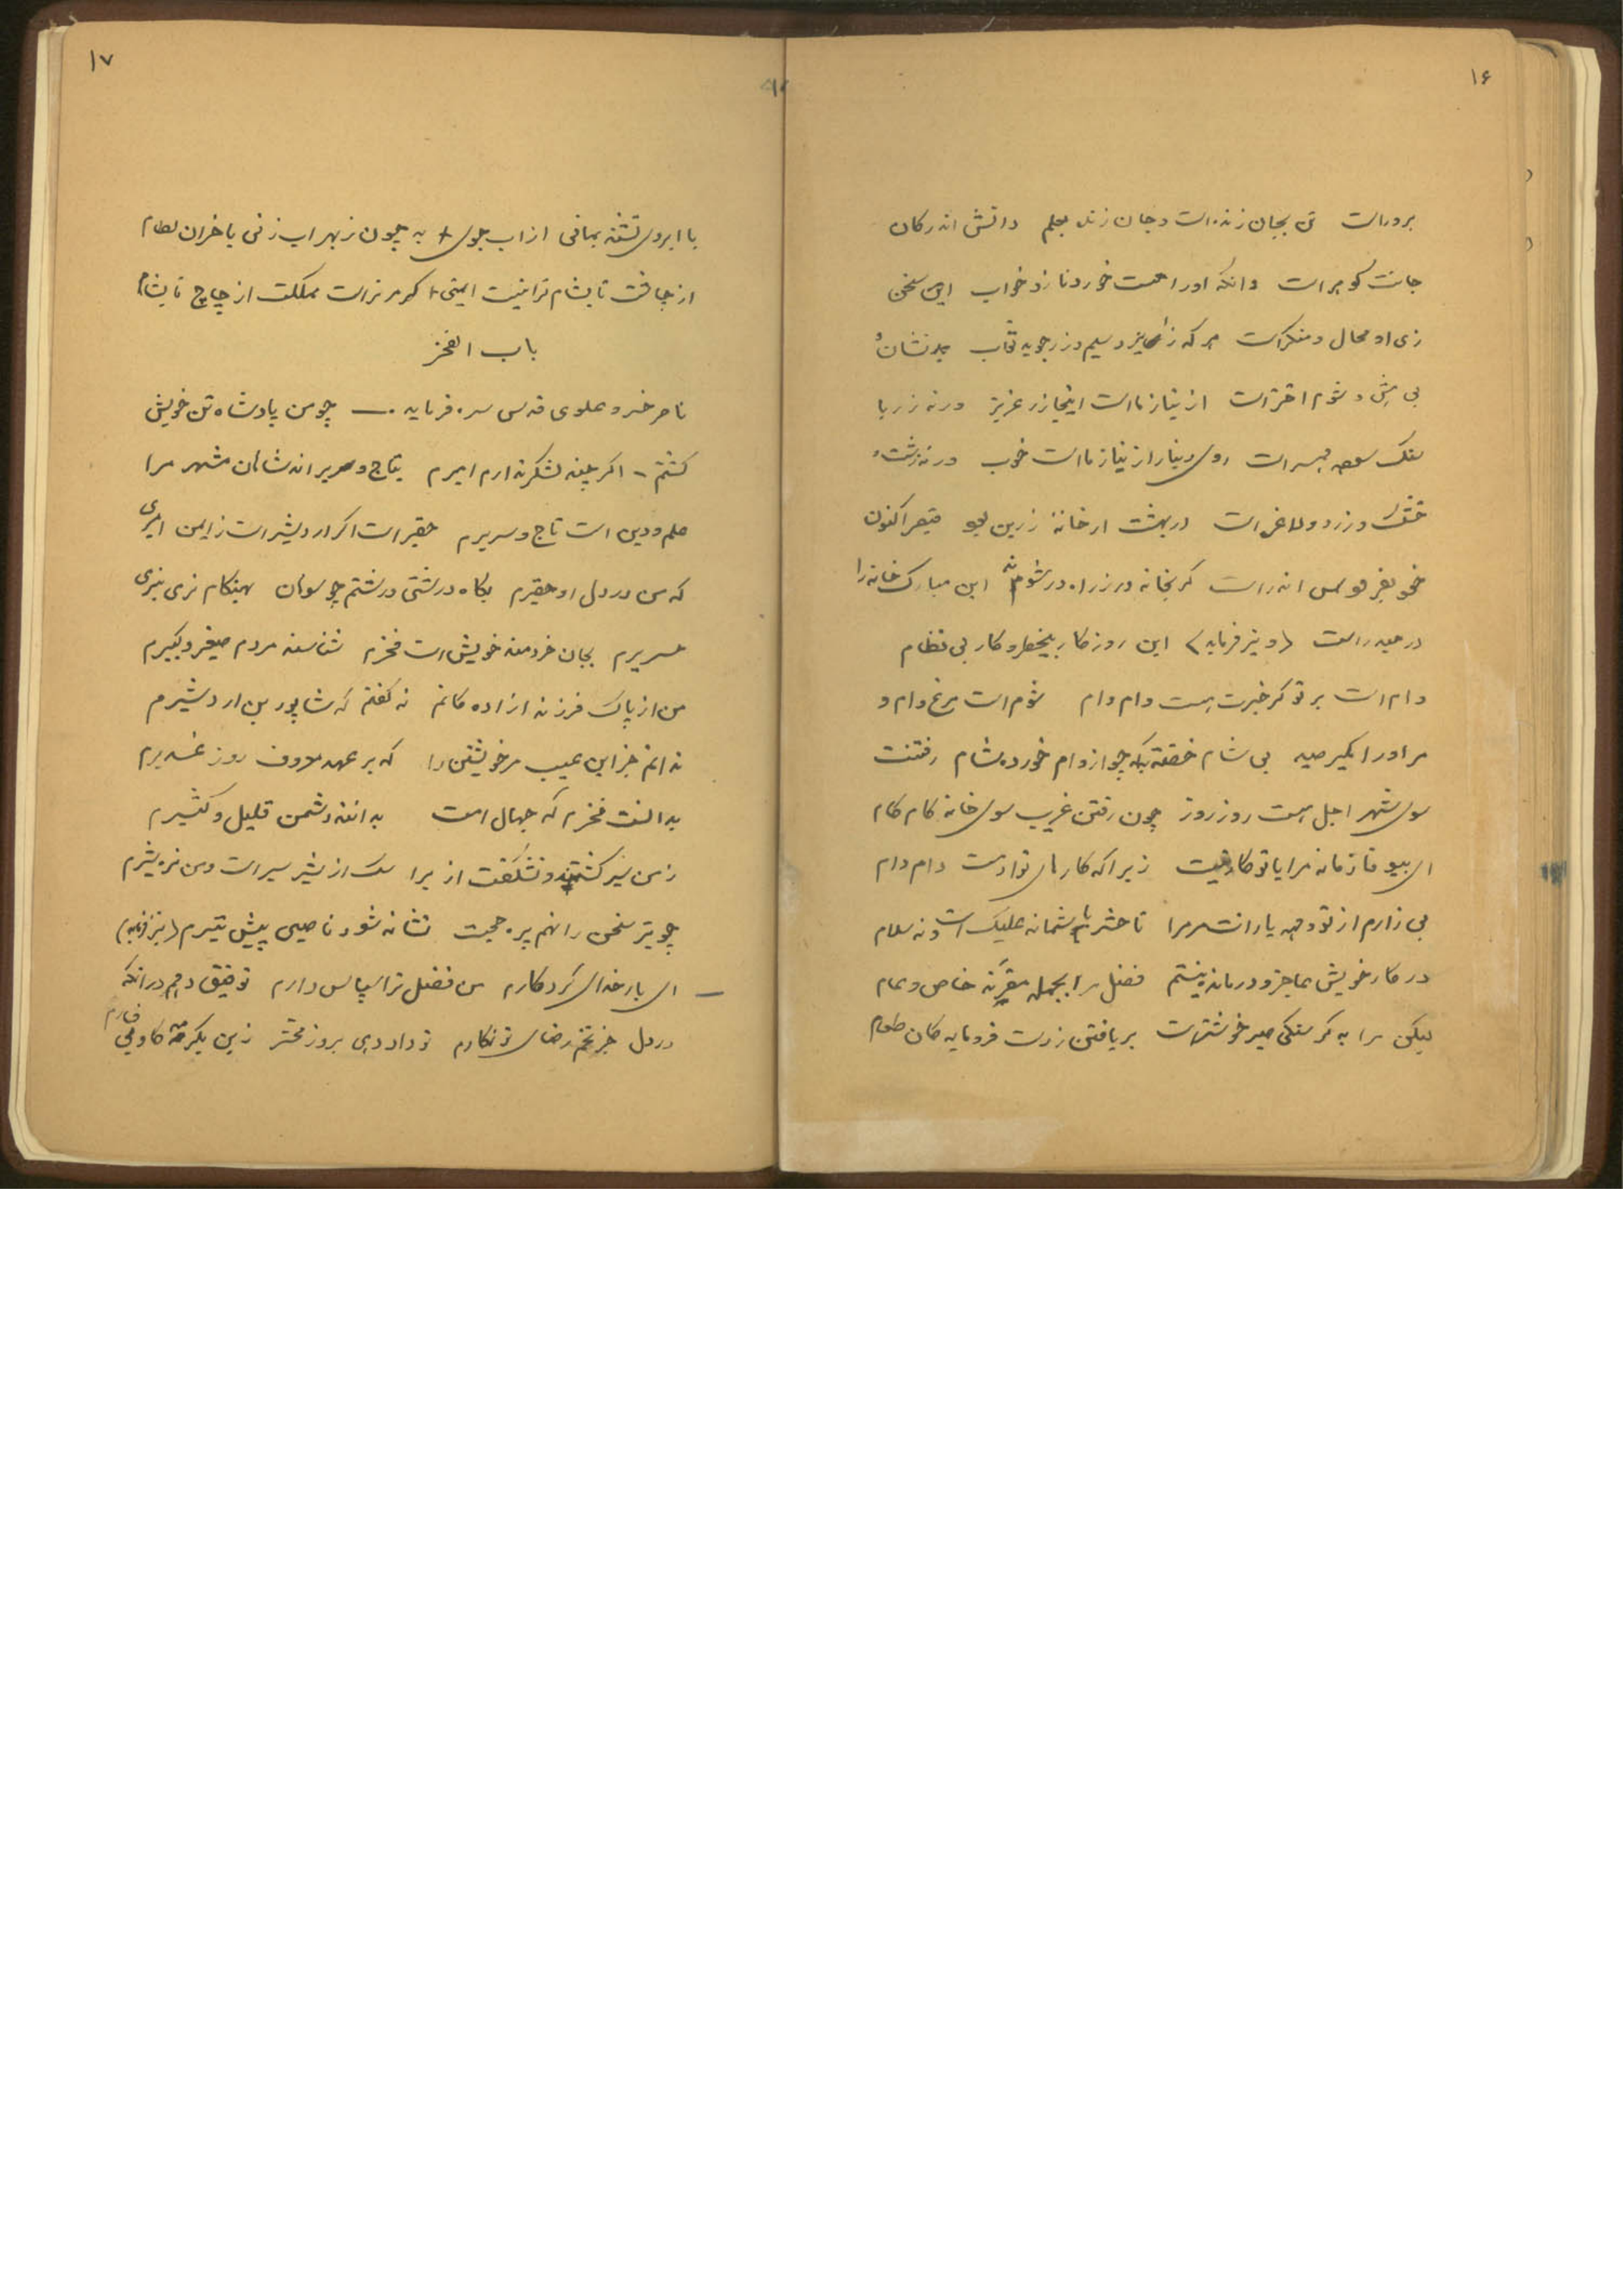 ۱۶
بروراست تن بجان زنده است و جان زنده بعلم دانش اندر کان
جانت گوهر است وانکه اورا همت خورد نازد خواب این سخن
زی او محال و منکر است هر که زایزد سیم و زر جوید ثواب بد نشان و
بی هش و شوم اختر است از نیاز ما است اینجا زر عزیز ورنه زر با
سنک همبر است روی دینار از نیاز ما است خوب ورنه زشت و
خشک و زرد و لاغر است در بهشت ار خانهٔ زرین بود قیصر اکنون
خود بفردوس اندر است کر بخانه در زراه در شوند این مبارک خانه را
در حیدر است (و نیز فرماید) این روزکار بیخطر و کار بی نظام
وام است بر تو کر خبرت هست وام وام شوم است مرغ وام و
مر اورا مکیر صید بی شام خفته به که چو از وام خورده شام رفتنت
سوی شهر اجل هست روز روز چون رفتن غریب سوی خانه کام کام
ای بیوفا زمانه مرا با تو کار نیست زیرا که کارهای تو ادمت دام دام
بی زارم از تو و همه یارانت مر مرا تا حشر با شما نه علیک است و نه سلام
در کار خویش عاجز و درمانده نیستم فضل مرا بجمله مقرند خاص و عام
لیکن مرا به کرسنکی صبر خوشتر است بر یافتن زدست فرومایه کان طعام
۱۷
با ابروی تشنه بمانی از اب جوی به چون ز بهر اب زنی با خران لطام
از چاشت تا بشام ترا نیست ایمنی کر مر تراست مملکت از چاچ تا بشام
باب الفخر
ناصر خسرو علوی قدس سره فرماید — چو من پادشاه تن خویش
کشتم - اکر چند لشکر ندارم امیرم بتاج و سریر اند شاهان مشهر مرا
علم و دین است تاج و سریرم حقیر است اکر اردشیر است زایمن امیری
که من در دل او حقیرم بکاه درشتی درشتم چو سوهان بهنکام نرمی بنرمی
حریرم بجان خردمند خویش است فخرم شناسند مردم صغیر و کبیرم
من از پاک فرزند ازاده کانم نه کفتم که شاپور بن اردشیرم
ندانم جز این عیب مر خویشتن را که بر عهد معروف روز غدیرم
بدانست فخرم که جهال امت بدانند دشمن قلیل و کثیرم
زمن سیر کشتند و نشکفت ازیرا سک از شیر سیر است و من نره شیرم
چو تیر سخن را نهم پر حجت نشانه شود ناصبی پیش تیرم (نیز فرماید)
— ای بارخدای کردکارم من فضل ترا سپاس دارم توفیق دهم در انکه
در دل جز تخم رضای تو نکارم تو داد دهی بروز محشر زین یکرمه کاو بی فسارم